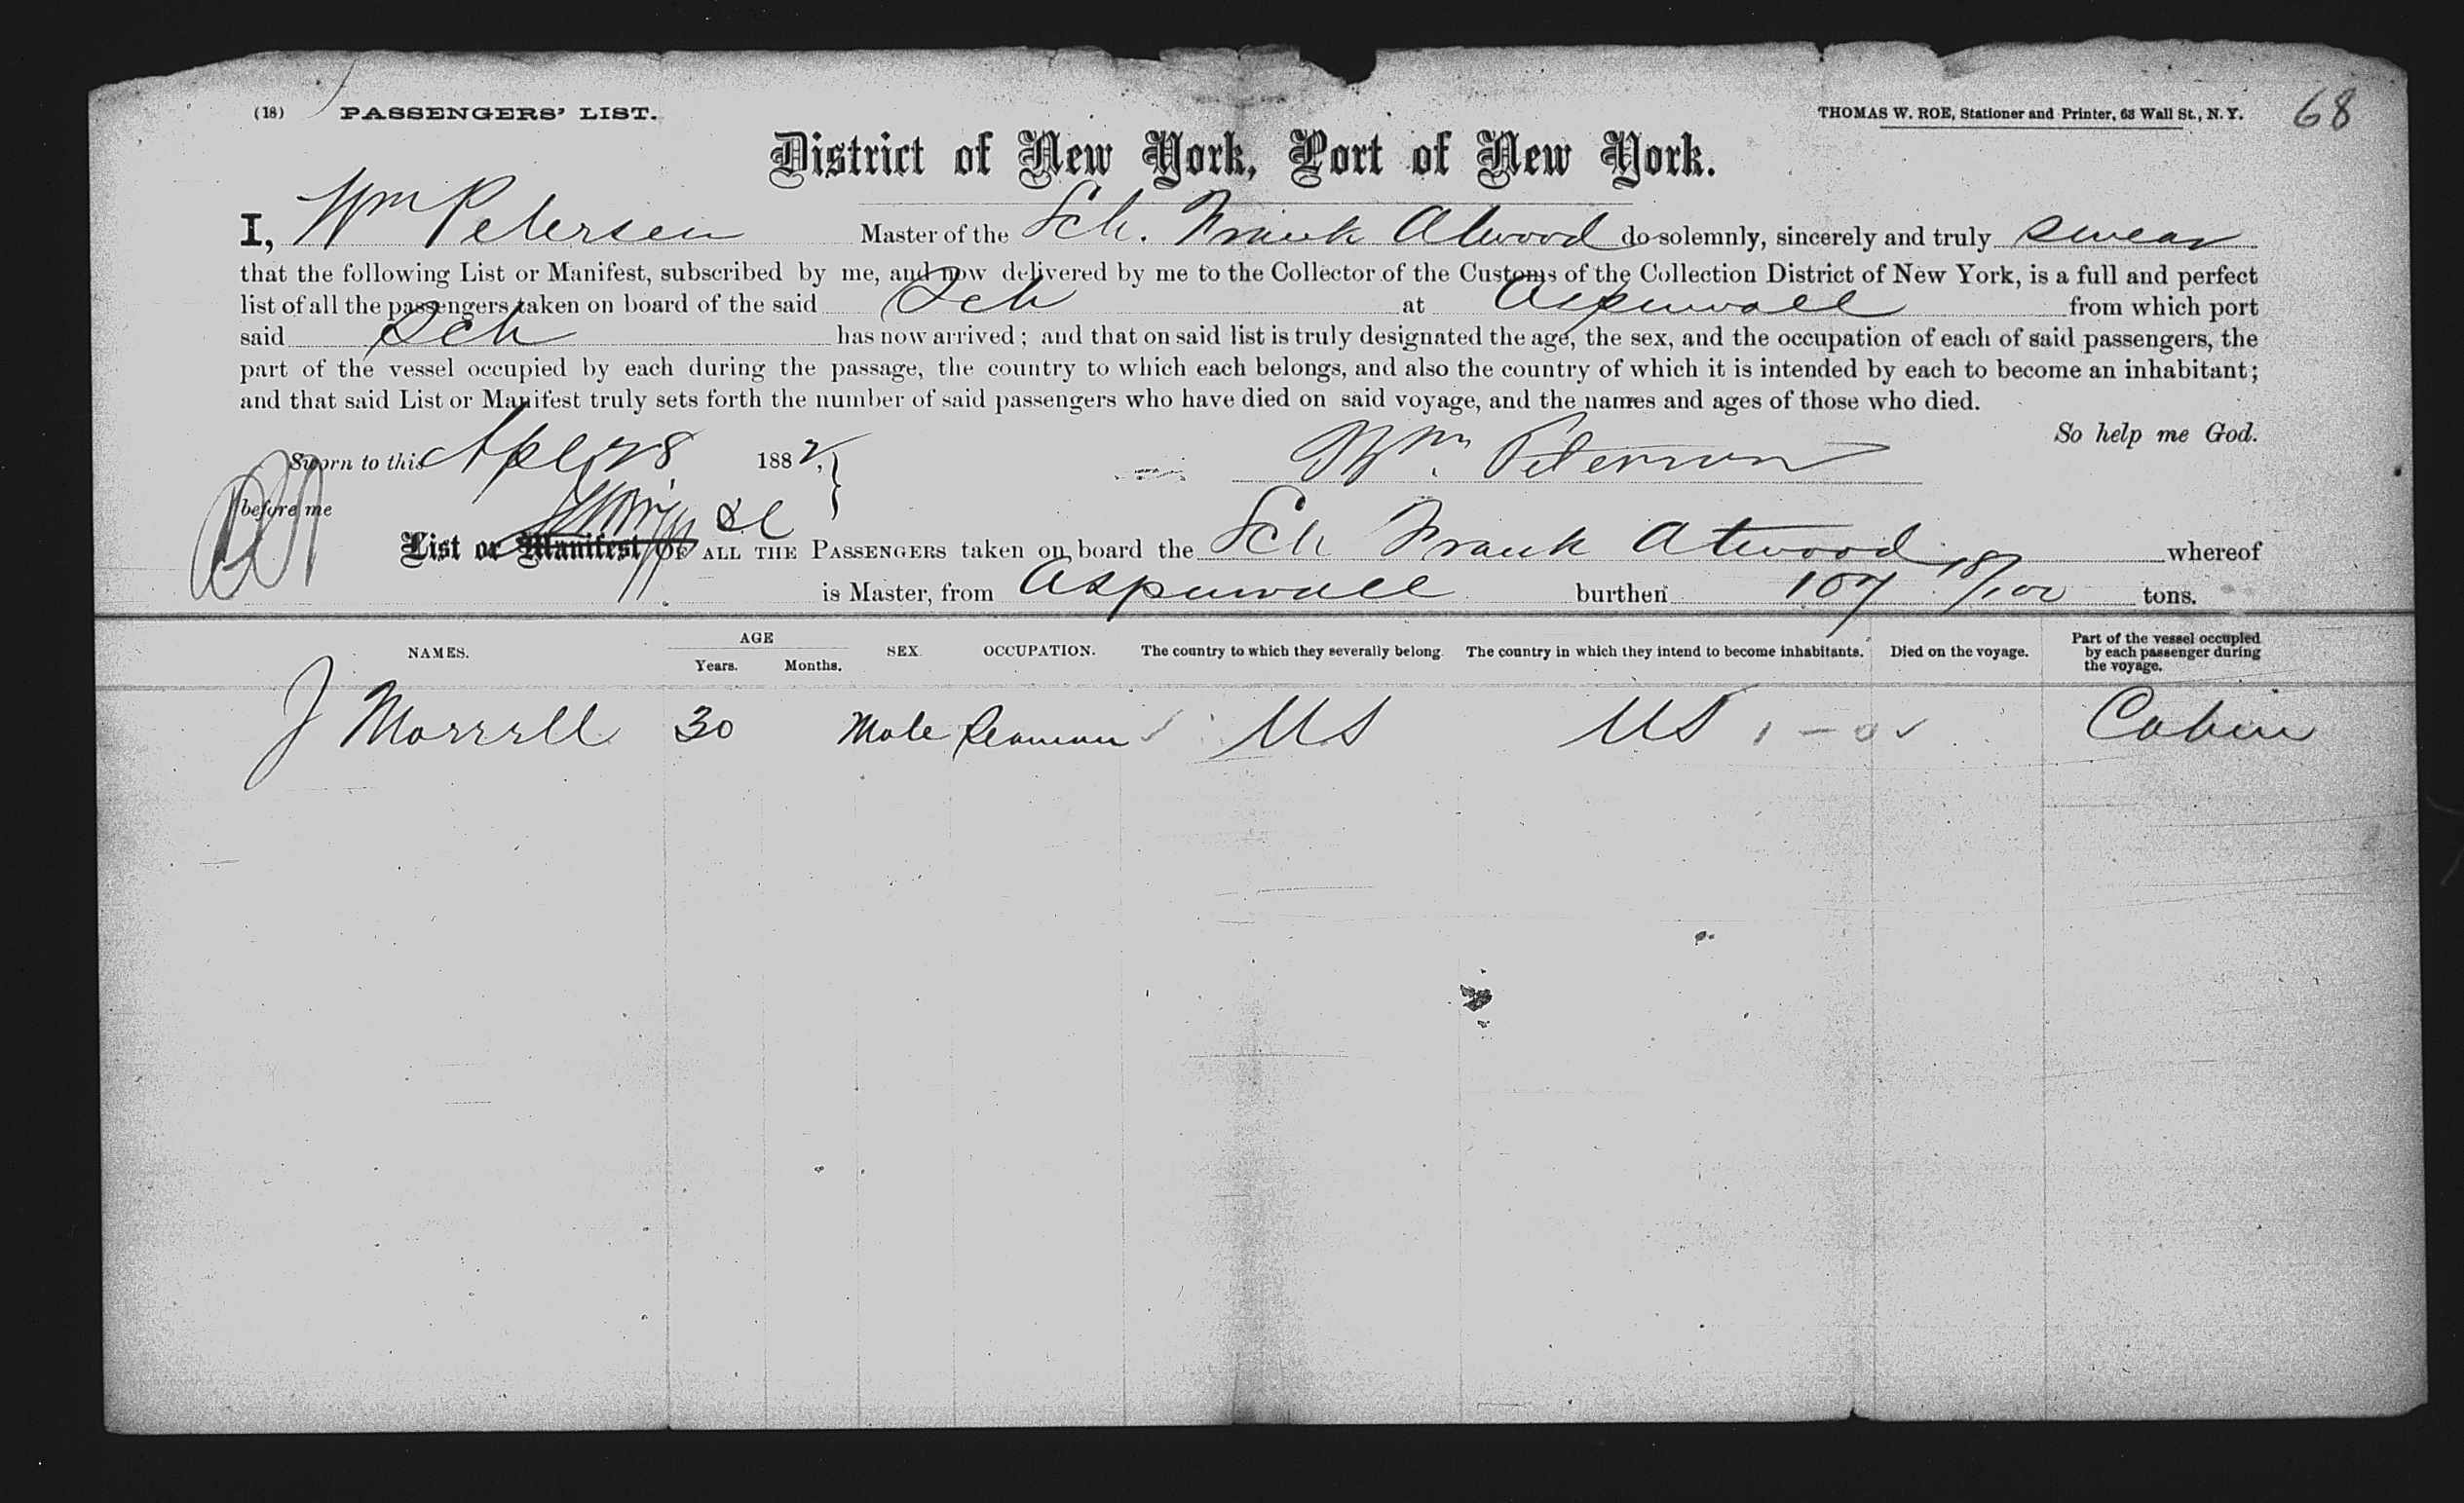 (18) PASSENGERS' LIST.
THOMAS W. ROE, Stationer and Printer, 63 Wall St., N. Y.
68
District of New York, Port of New York.
I, Wm Petersen Master of the Sch. Frank Atwood do solemnly, sincerely and truly swear
that the following List or Manifest, subscribed by me, and now delivered by me to the Collector of the Customs of the Collection District of New York, is a full and perfect
list of all the passengers taken on board of the said Sch at Aspinwall from which port
said Sch has now arrived; and that on said list is truly designated the age, the sex, and the occupation of each of said passengers, the
part of the vessel occupied by each during the passage, the country to which each belongs, and also the country of which it is intended by each to become an inhabitant;
and that said List or Manifest truly sets forth the number of said passengers who have died on said voyage, and the names and ages of those who died.
So help me God.
Sworn to this Apl 28 1882, Wm. Peterson
before me
List or Manifest OF ALL THE PASSENGERS taken on board the Sch Frank Atwood whereof
is Master, from Aspinwall burthen 107 18/100 tons.
NAMES. AGE Years. Months. SEX. OCCUPATION. The country to which they severally belong. The country in which they intend to become inhabitants. Died on the voyage. Part of the vessel occupied by each passenger during the voyage.
J Morrell 30 Male Seaman US US Cabin